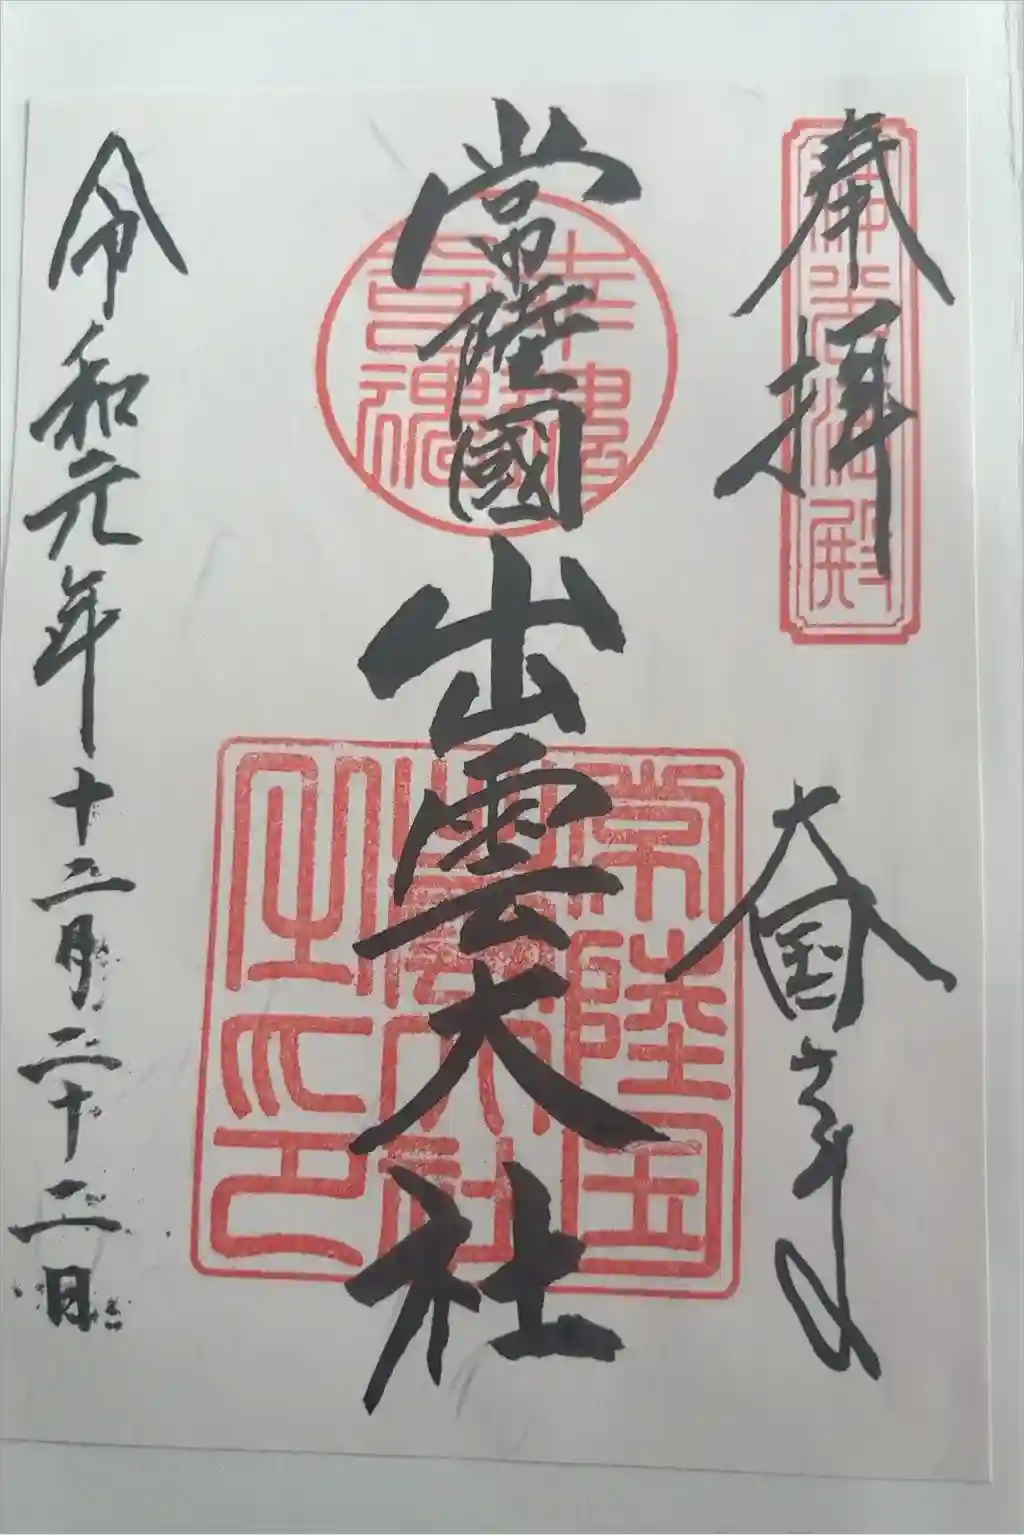 奉拝
大国主
常陸國
出雲大社
令和元年十二月二十二日
常陸国
出雲大社
之印